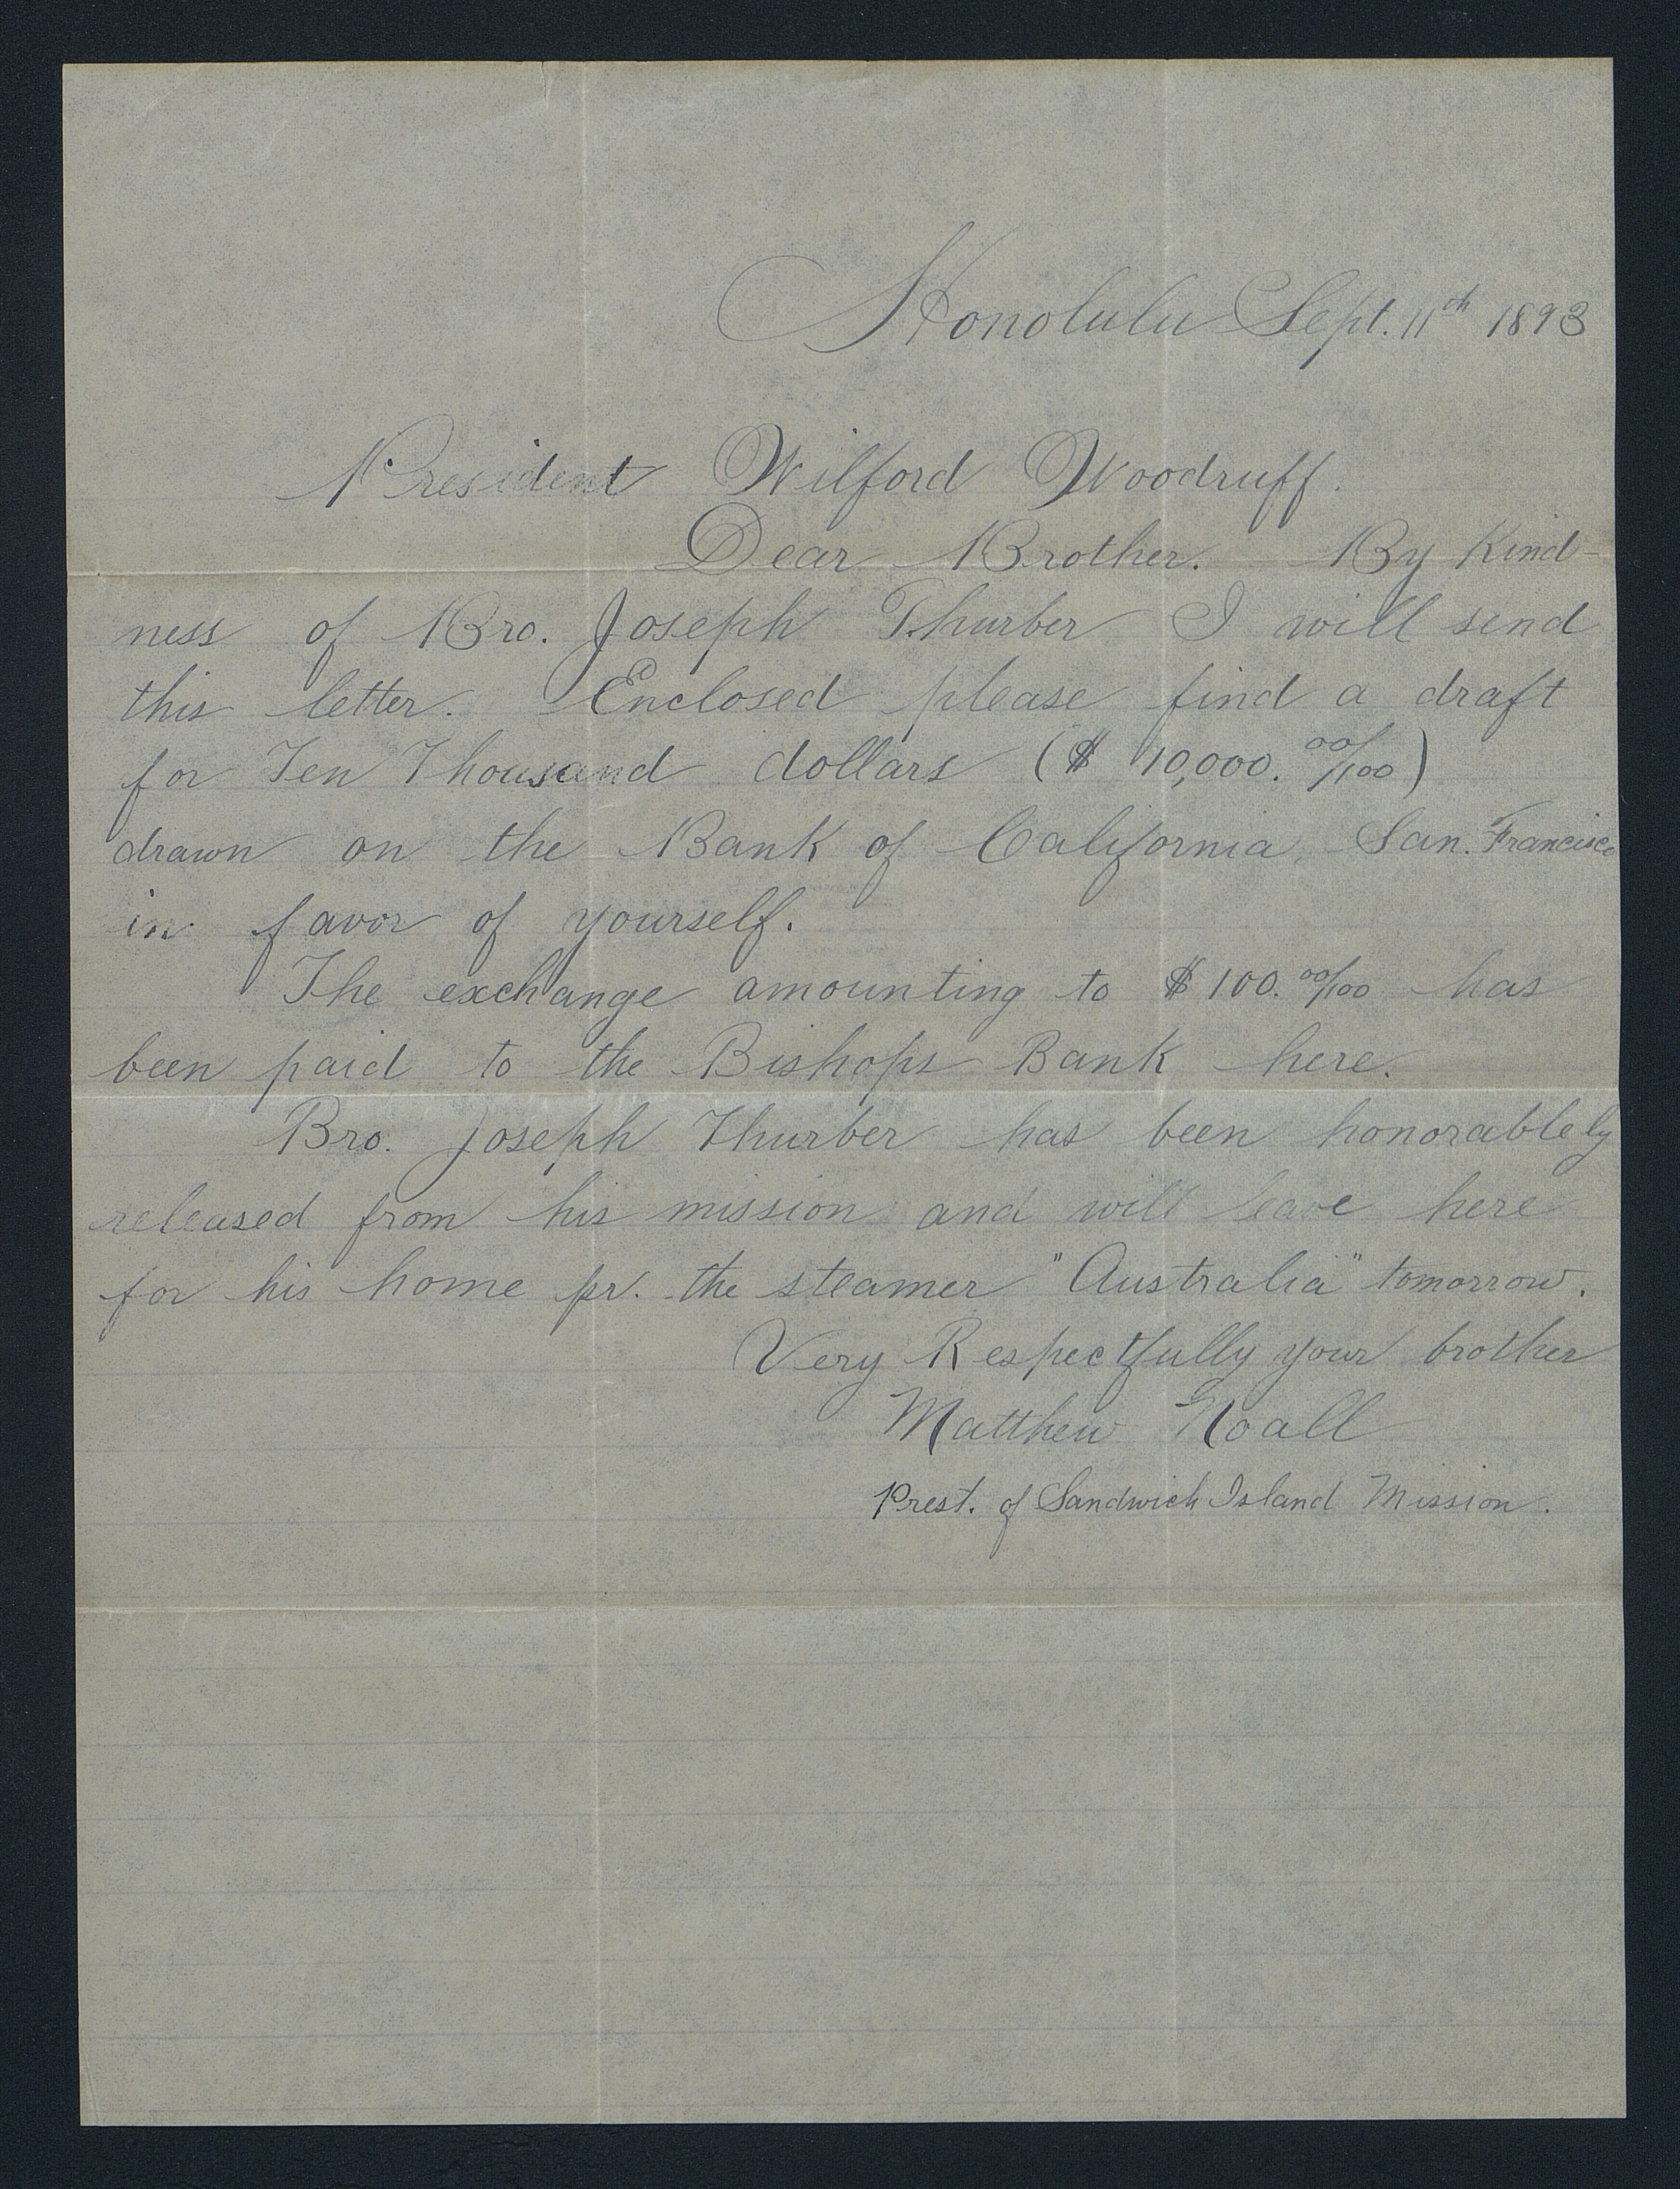 Honolulu Sept. 11th 1893
President Wilford Woodruff.
Dear Brother. By Kind-
ness of Bro. Joseph Thurber I will send
this letter. Enclosed please find a draft
for Ten Thousand dollars ($ 10,000. 00/100)
drawn on the Bank of California San. Francisco
in favor of yourself.
The exchange amounting to $ 100. 00/100 has
been paid to the Bishops Bank here.
Bro. Joseph Thurber has been honorablely
released from his mission and will leave here
for his home pr. the steamer "Australia" tomorrow.
Very Respectfully your brother
Matthew Noall
Prest. of Sandwich Island Mission.